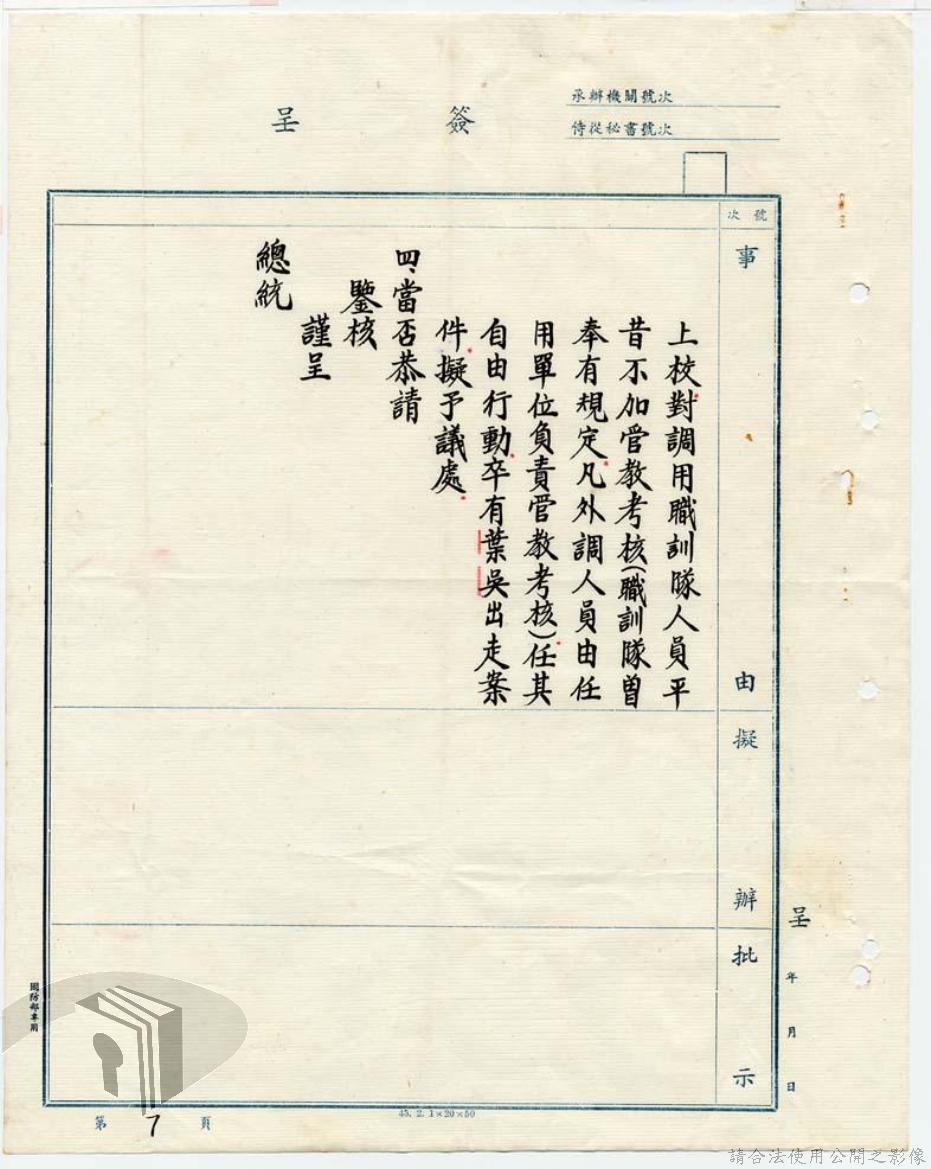 簽呈
承辦機關號次
侍從秘書號次
號次
事由
擬辦
批示
呈 年 月 日
上校對調用職訓隊人員平
昔不加管教考核(職訓隊曾
奉有規定凡外調人員由任
用單位負責管教考核)任其
自由行動卒有葉吳出走案
件擬予議處
四、當否恭請
鑒核
謹呈
總統
國防部專用
第7頁
45. 2. 1×20×50
請合法使用公開之影像